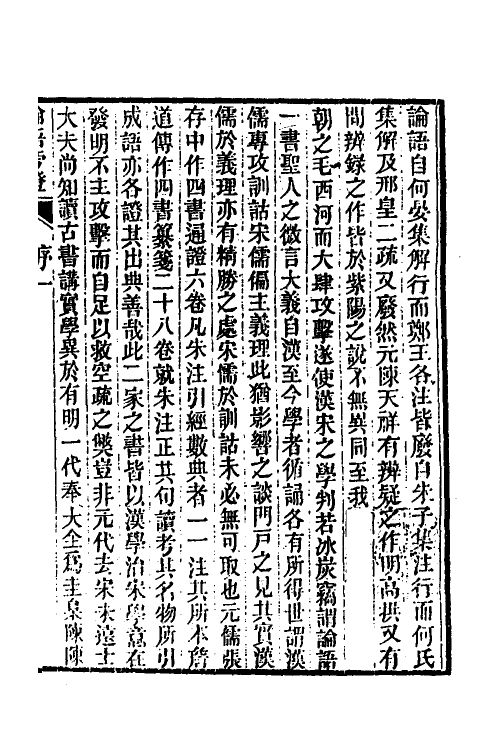 論語自何晏集解行而鄭王各注皆廢自朱子集注行而何氏
集解及邢皇二疏又廢然元陳天祥有辨疑之作明高拱又有
問辨錄之作皆於紫陽之說不無異同至我
朝之毛西河而大肆攻擊遂使漢宋之學判若冰炭竊謂論語
一書聖人之微言大義自漢至今學者循誦各有所得世謂漢
儒專攻訓詁宋儒偏主義理此猶影響之談門戶之見其實漢
儒於義理亦有精勝之處宋儒於訓詁未必無可取也元儒張
存中作四書通證六卷凡朱注引經數典者一一注其所本詹
道傳作四書纂箋二十八卷就朱注正其句讀考其名物所引
成語亦各證其出典善哉此二家之書皆以漢學治宋學意在
發明不主攻擊而自足以救空疏之弊豈非元代去宋未遠士
大夫尚知讀古書講實學異於有明一代奉大全為圭臬陳陳
論語旁證 序 一